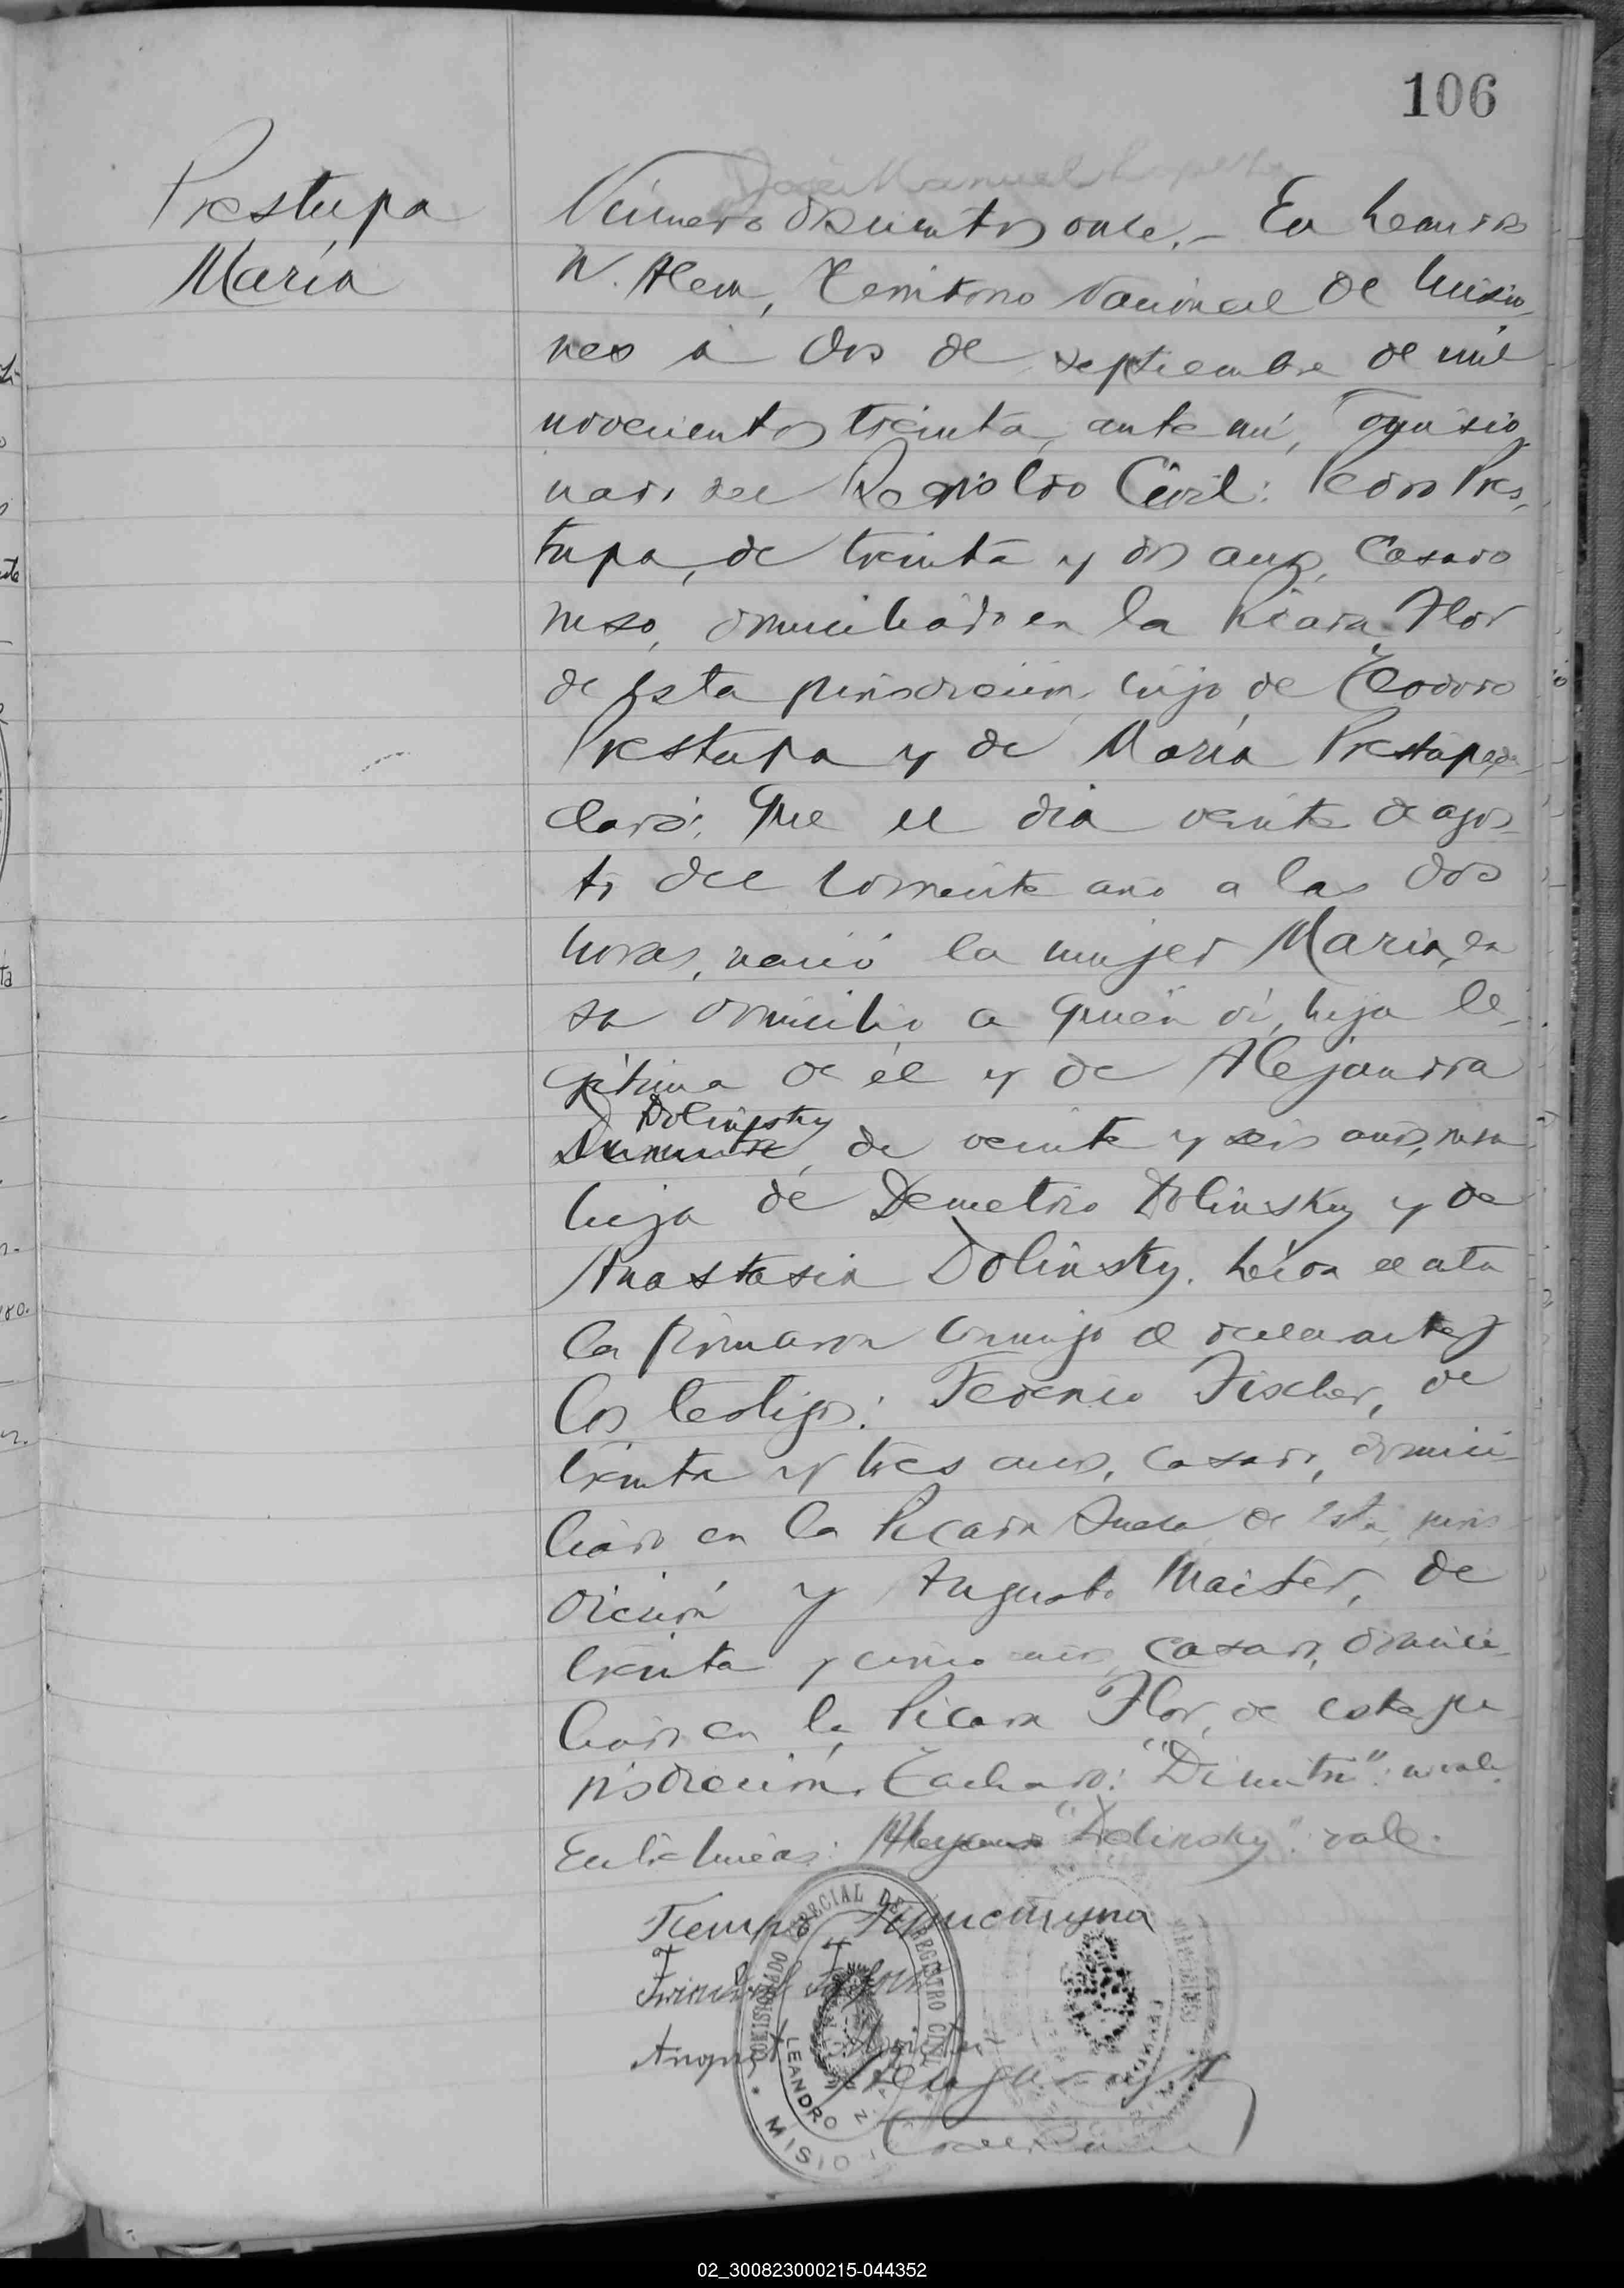 106
Prestupa
María
Número doscientos once.- En Leandro
N. Alem, Territorio Nacional de Misio-
nes a dos de septiembre de mil
novecientos treinta, ante mí, Comisio-
nado del Registro Civil: Pedro Pres-
tupa, de treinta y dos años, casado
ruso, domiciliado en la Picada Flor
de esta jurisdicción, hijo de Teodoro
Prestupa y de María Prestupa, de-
claró: Que el día veinte de agos-
to del corriente año a las dos
horas, nació la mujer María, en
su domicilio, a quién ví, hija le-
gítima de él y de Alejandra
Dolinsky
Dimitre, de veinte y seis años, rusa
hija de Demetrio Dolinsky y de
Anastasia Dolinsky. Leída el acta
la firmaron conmigo el declarante y
los testigos: Federico Fischer, de
treinta y tres años, casado, domici-
liado en la Picada Sueca de esta juris-
dicción y Augusto Maister, de
treinta y cinco años, casado, domici-
liado en la Picada Flor, de esta ju-
risdicción. Tachado: "Dimitre": no vale.
Entre lineas: "Dolinsky": vale.
COMISIONADO ESPECIAL DEL REGISTRO CIVIL
LEANDRO N.
MISIO
02_300823000215-044352